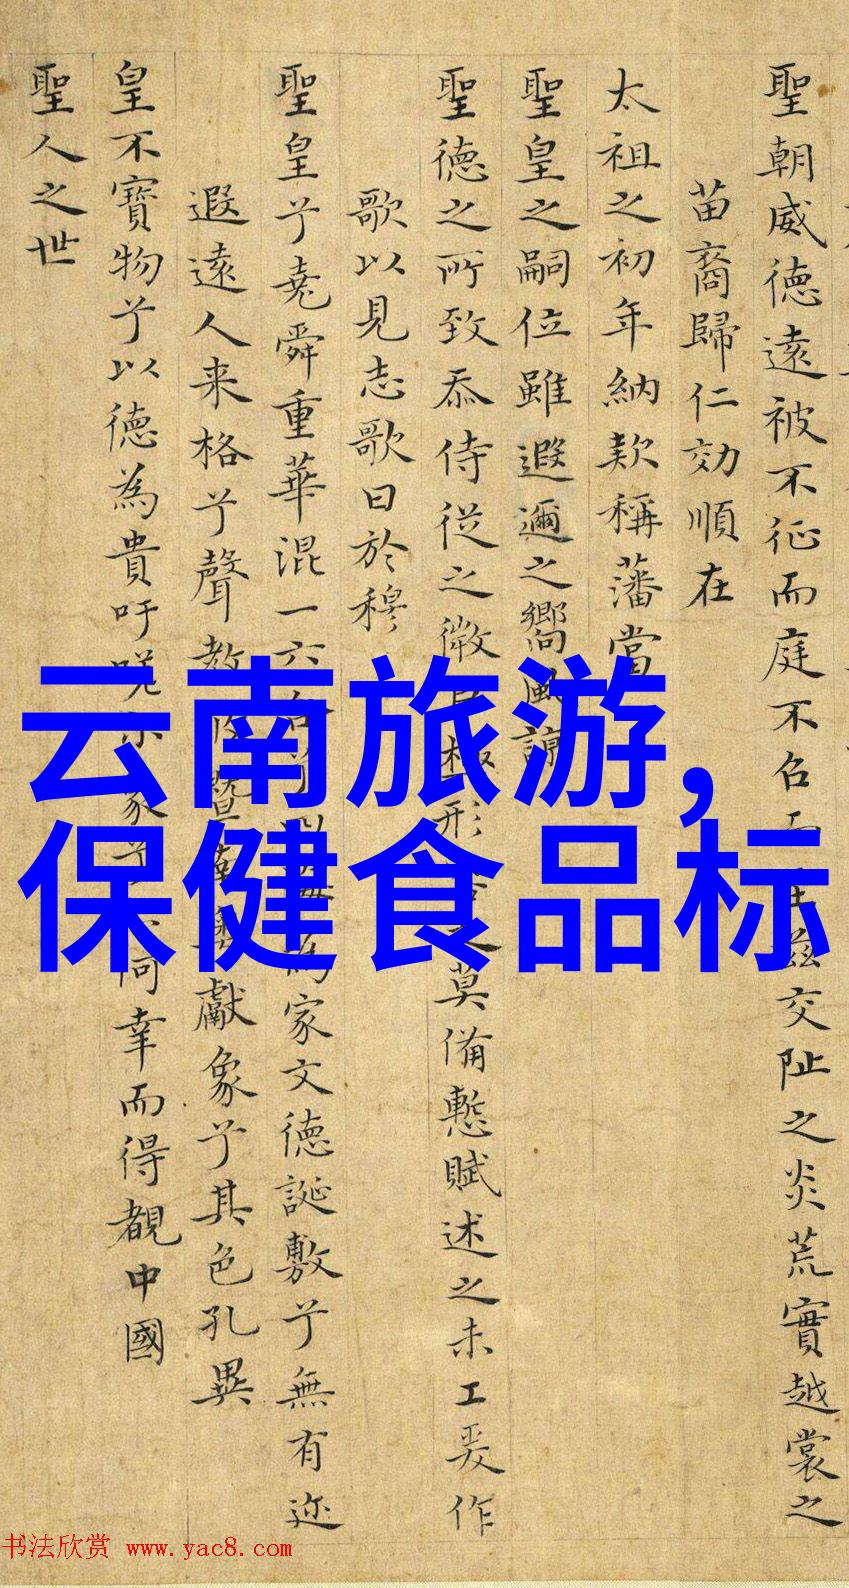 聖朝威德遠被不征而庭不召
兹交阯之炎荒實越裳之
苗裔歸仁効順在
太祖之初年納款稱藩當
聖皇之嗣位雖遐邇之嚮風諒
聖德之所致忝侍從之微
形
莫備慙賦述之未工爰作
歌以見志歌曰於穆
聖皇兮堯舜重華混一六合
家文德誕敷兮無有迩
遐遠人来格兮聲教
獻象兮其色孔異
皇不寶物兮以德為貴吁嗟
何幸而得覩中國
聖人之世
云南旅游,
保健食品标
书法欣赏 www.yac8.com